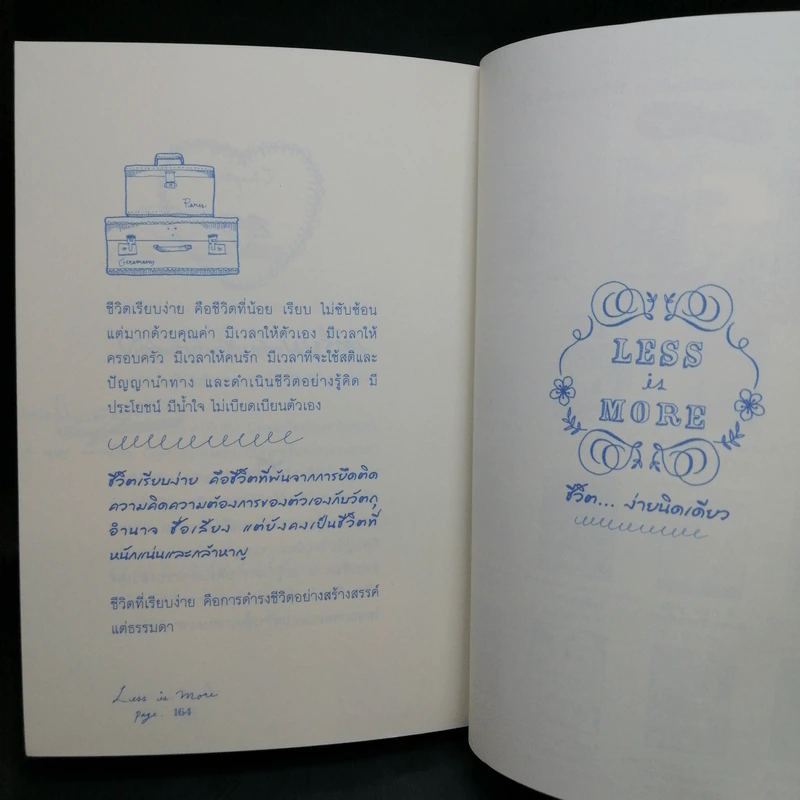 Paris
Germany
ชีวิตเรียบง่าย คือชีวิตที่น้อย เรียบ ไม่ซับซ้อน
แต่มากด้วยคุณค่า มีเวลาให้ตัวเอง มีเวลาให้
ครอบครัว มีเวลาให้คนรัก มีเวลาที่จะใช้สติและ
ปัญญานำทาง และดำเนินชีวิตอย่างรู้คิด มี
ประโยชน์ มีน้ำใจ ไม่เบียดเบียนตัวเอง
ชีวิตเรียบง่าย คือชีวิตที่พ้นจากการยึดติด
ความคิดความต้องการของตัวเองกับวัตถุ
อำนาจ ชื่อเสียง แต่ยังคงเป็นชีวิตที่
หนักแน่นและกล้าหาญ
ชีวิตที่เรียบง่าย คือการดำรงชีวิตอย่างสร้างสรรค์
แต่ธรรมดา
Less is More
page 164
LESS
is
MORE
ชีวิต... ง่ายนิดเดียว